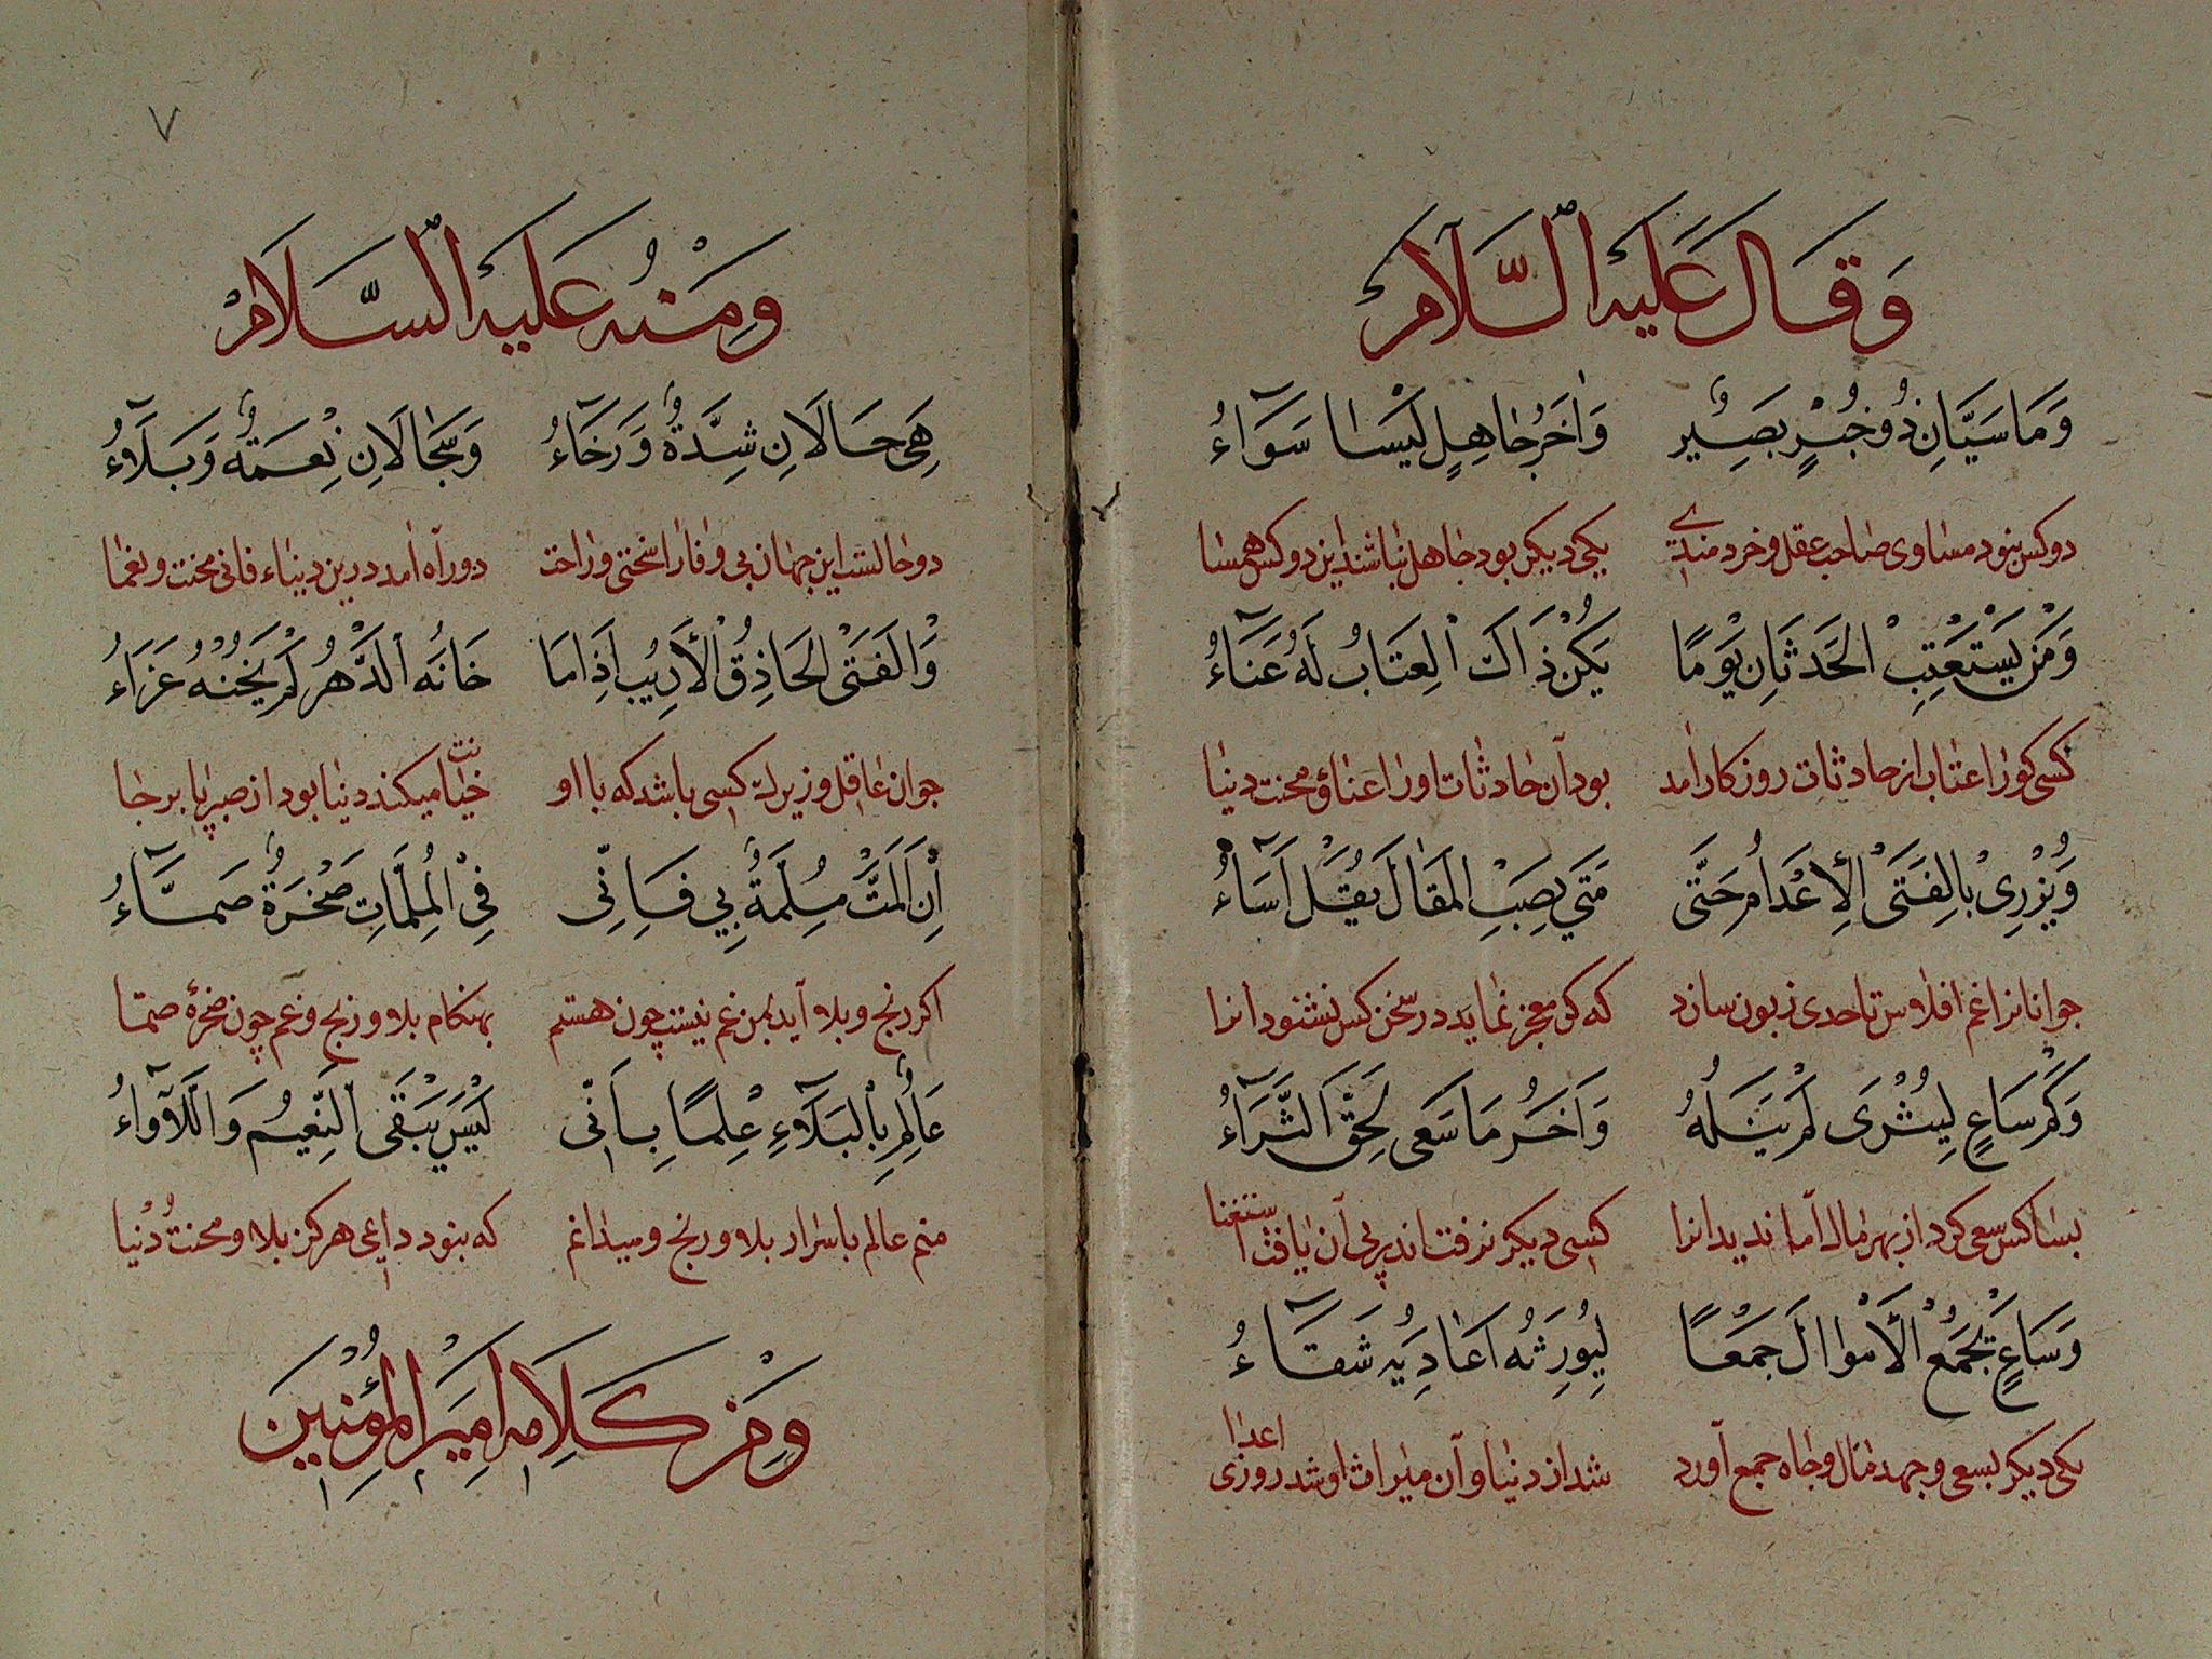 وَقَالَ عَلَيْهِ السَّلَامْ
وَمَا سَيَّانِ ذُو خُبْرٍ بَصِيرٌ وَاٰخَرُ جَاهِلٍ لَيْسَا سَوَآءُ
دو کس نبود مساوی صاحب عقل و خردمندی یکی دیکر بود جاهل نباشند این دو کس همسا
وَمَنْ يَسْتَعْتِبْ الْحَدَثَانِ يَوْمًا يَكُنْ ذَاكَ الْعِتَابُ لَهُ عَنَآءُ
کسی کورا عتاب از حادثات روزکار آمد بود آن حادثات اورا عناؤ محنت دنیا
وَيُزْرِىْ بِالْفَتَىْ الْاِعْدَامُ حَتَّى مَتَي يصِبْ الْمَقَالَ يُقَلْ اَسَآءُ
جوانانرا غم افلاس تا حدی زبون سازد که کر معجز نماید در سخن کس نشنود آنرا
وَكَمْ سَاعٍ لِيُثْرَى لَمْ يَنَلْهُ وَاٰخَرُ مَا سَعَى لَحِقَ الثَّرَآءُ
بسا کس سعی کرد از بهر مال اما ندید آنرا کسی دیکر نرفت اندر پی آن یافت استغنا
وَسَاعٍ تَجْمَعُ الْاَمْوَالَ جَمْعًا لِيُورِثَهُ اَعَادِيَهِ شَقَآءُ
یکی دیکر بسعی و جهد مال و جاه جمع آورد شد از دنیا و آن میراث او شد روزی اعدا
۷
وَمِنْهُ عَلَيْهِ السَّلَامْ
هِىَ حَالَانِ شِدَّةٌ وَرَخَآءُ وَسَجَالَانِ نِعْمَةٌ وَبَلَآءُ
دو حالست این جهان بی وفارا سختی و راحت دو راه آمد درین دنیاء فانی محنت و نعما
وَالْفَتَى الْحَاذِقُ الْاَدِيبُ اِذَا مَا خَانَهُ الدَّهْرُ لَمْ يَخُنْهُ عَزَاءُ
جوان عاقل و زیرک کسی باشد که با او خیانت میکند دنیا بود از صبر پا بر جا
اِنْ اَلَمَّتْ مُلِمَّةٌ بِي فَاِنِّى فِىْ الْمُلِمَّاتِ صَخْرَةٌ صَمَّآءُ
اکر رنج و بلا آید بمن غم نیست چون هستم بهنکام بلا و رنج و غم چون صخرهٔ صما
عَالِمٌ بِالْبَلَآءِ عِلْمًا بِاَنِّى لَيْسَ يَبْقَى النَّعِيمُ وَاللَّآوَاءُ
منم عالم باسرار بلا و رنج و میدانم که نبود داعی هرکز بلا و محنت دُنْیا
وَمِنْ كَلَامِ اَمِيرِ الْمُؤْمِنِينَ